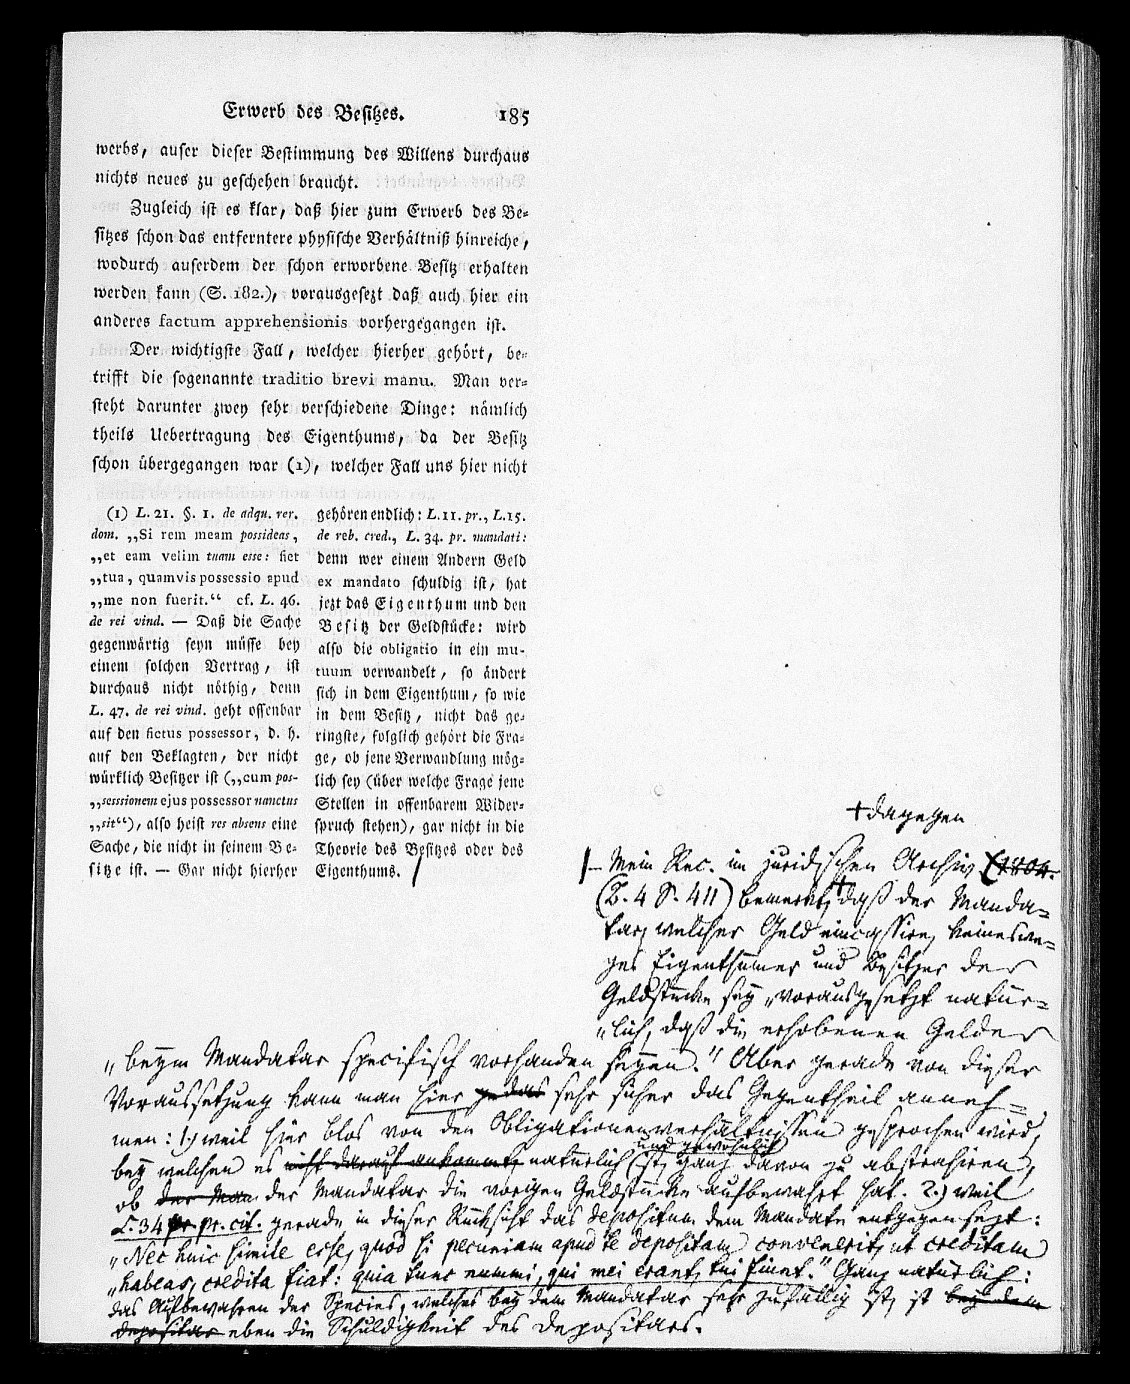 Erwerb des Besitzes. 185
werbs, auser dieser Bestimmung des Willens durchaus
nichts neues zu geschehen braucht.
Zugleich ist es klar, daß hier zum Erwerb des Be-
sitzes schon das entferntere physische Verhältniß hinreiche,
wodurch auserdem der schon erworbene Besitz erhalten
werden kann (S. 182.), vorausgesezt daß auch hier ein
anderes factum apprehensionis vorhergegangen ist.
Der wichtigste Fall, welcher hierher gehört, be-
trifft die sogenannte traditio brevi manu. Man ver-
steht darunter zwey sehr verschiedene Dinge: nämlich
theils Uebertragung des Eigenthums, da der Besitz
schon übergegangen war (1), welcher Fall uns hier nicht
(1) L. 21. §. 1. de adqu. rer.
dom. „Si rem meam possideas,
„et eam velim tuam esse: fiet
„tua, quamvis possessio apud
„me non fuerit.“ cf. L. 46.
de rei vind. — Daß die Sache
gegenwärtig seyn müsse bey
einem solchen Vertrag, ist
durchaus nicht nöthig, denn
L. 47. de rei vind. geht offenbar
auf den fictus possessor, d. h.
auf den Beklagten, der nicht
würklich Besitzer ist („cum pos-
„sesssionem ejus possessor nanctus
„sit“), also heist res absens eine
Sache, die nicht in seinem Be-
sitze ist. — Gar nicht hierher
gehören endlich: L. 11. pr., L. 15.
de reb. cred., L. 34. pr. mandati:
denn wer einem Andern Geld
ex mandato schuldig ist, hat
jezt das Eigenthum und den
Besitz der Geldstücke: wird
also die obligatio in ein mu-
tuum verwandelt, so ändert
sich in dem Eigenthum, so wie
in dem Besitz, nicht das ge-
ringste, folglich gehört die Fra-
ge, ob jene Verwandlung mög-
lich sey (über welche Frage jene
Stellen in offenbarem Wider-
spruch stehen), gar nicht in die
Theorie des Besitzes oder des
Eigenthums.
+ dagegen
– Mein Rec. im juridischen Archiv (1804.
(B. 4 S. 411) bemerkt, + daß der Manda-
tar, welcher Geld eincassire, keineswe-
ges Eigenthümer und Besitzer der
Geldstücke sey „vorausgesetzt natür-
„lich, daß die erhobenen Gelder
„beym Mandatar specifisch vorhanden seyen." Aber gerade von dieser
Voraussetzung kann man hier gedas sehr sicher das Gegentheil anneh-
men: 1.) weil hier blos von den Obligationenverhältnissen gesprochen wird,
und gewöhnlich
bey welchen es nicht darauf ankommt, natürlich ist, ganz davon zu abstrahiren,
ob der Man der Mandatar die vorigen Geldstücke aufbewahrt hat. 2.) weil
L. 34 pr pr. cit. gerade in dieser Rücksicht das depositum dem Mandate entgegensezt:
„Nec huic simile esse, quod si pecuniam apud te depositam convenerit, ut creditam
„habeas, credita fiat: quia tunc nummi, qui mei erant, tui fiunt." Ganz natürlich:
das Aufbewahren der Species, welches bey dem Mandatar sehr zufällig ist, ist bey dem
depositar eben die Schuldigkeit des depositars.